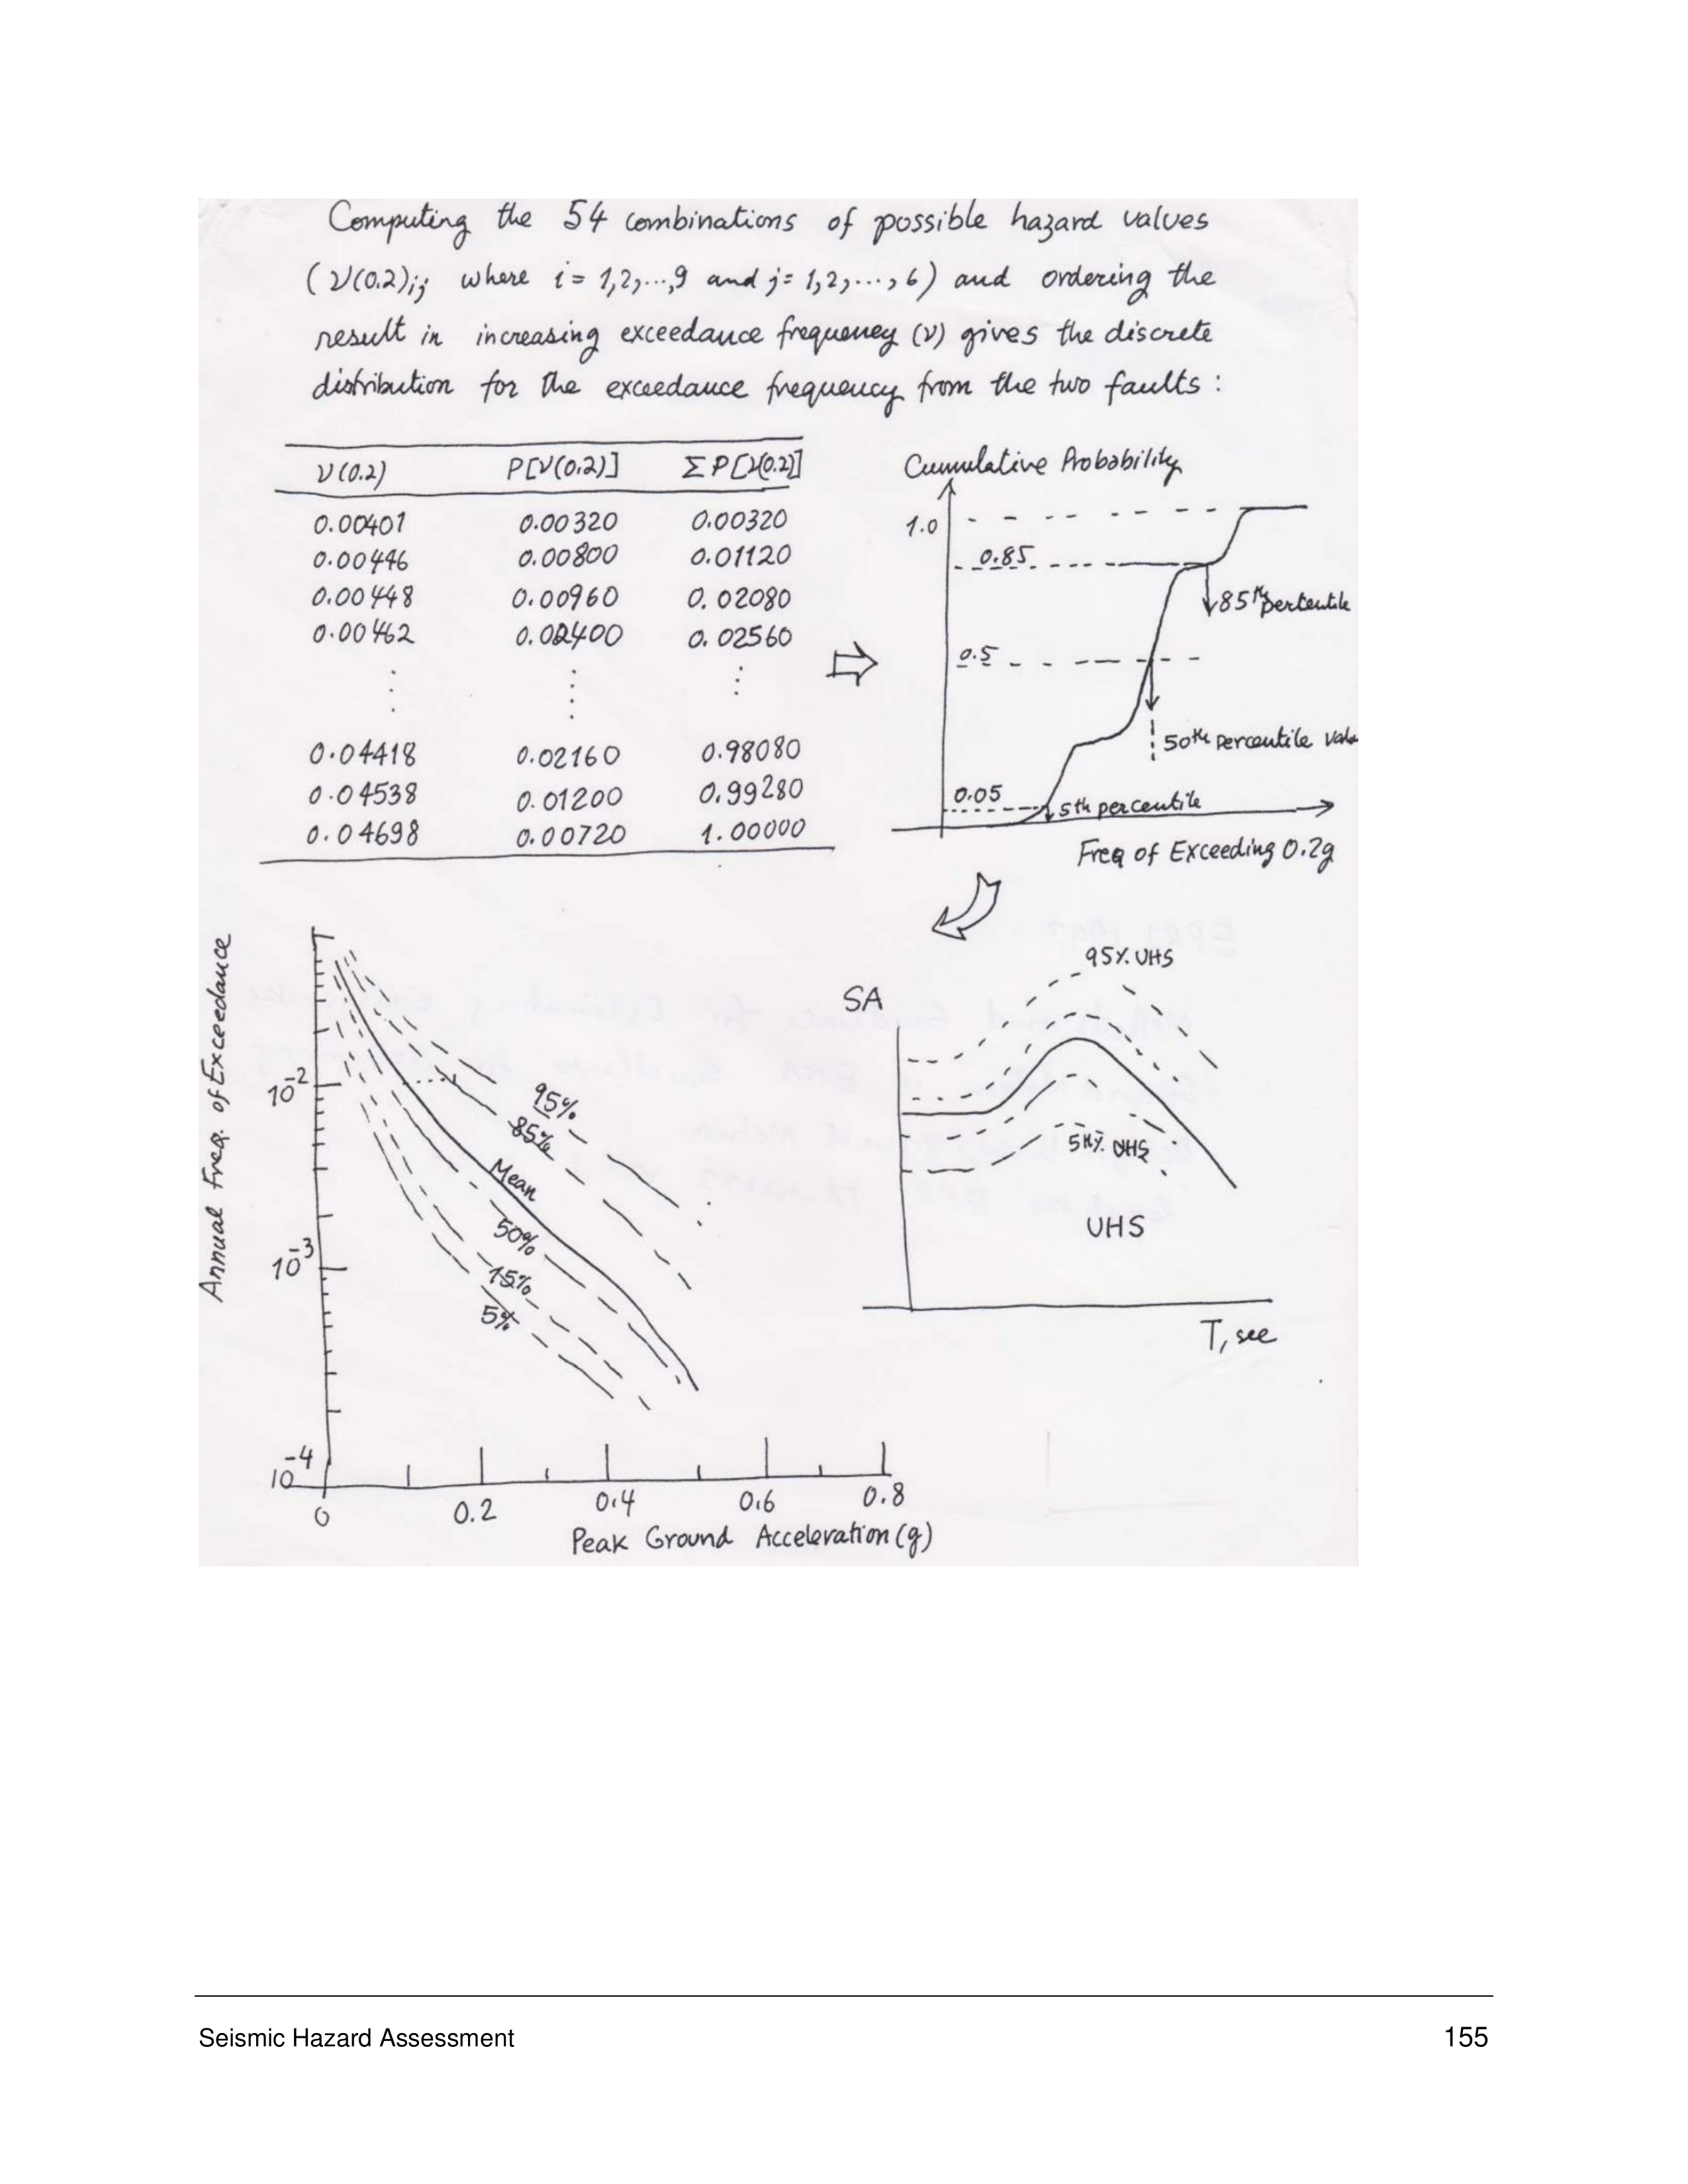 Computing the 54 combinations of possible hazard values
(ν(0.2)ij where i = 1,2,...,9 and j = 1,2,...,6) and ordering the
result in increasing exceedance frequency (ν) gives the discrete
distribution for the exceedance frequency from the two faults :
ν(0.2) P[ν(0.2)] ΣP[ν(0.2)]
0.00401 0.00320 0.00320
0.00446 0.00800 0.01120
0.00448 0.00960 0.02080
0.00462 0.02400 0.02560
0.04418 0.02160 0.98080
0.04538 0.01200 0.99280
0.04698 0.00720 1.00000
Cumulative Probability
1.0
0.85
85th percentile
0.5
50th percentile valu
0.05
5th percentile
Freq of Exceeding 0.2g
Annual Freq. of Exceedance
10-2
10-3
10-4
95%
85%
Mean
50%
15%
5%
0 0.2 0.4 0.6 0.8
Peak Ground Acceleration (g)
SA
95% UHS
5th% UHS
UHS
T, sec
Seismic Hazard Assessment 155